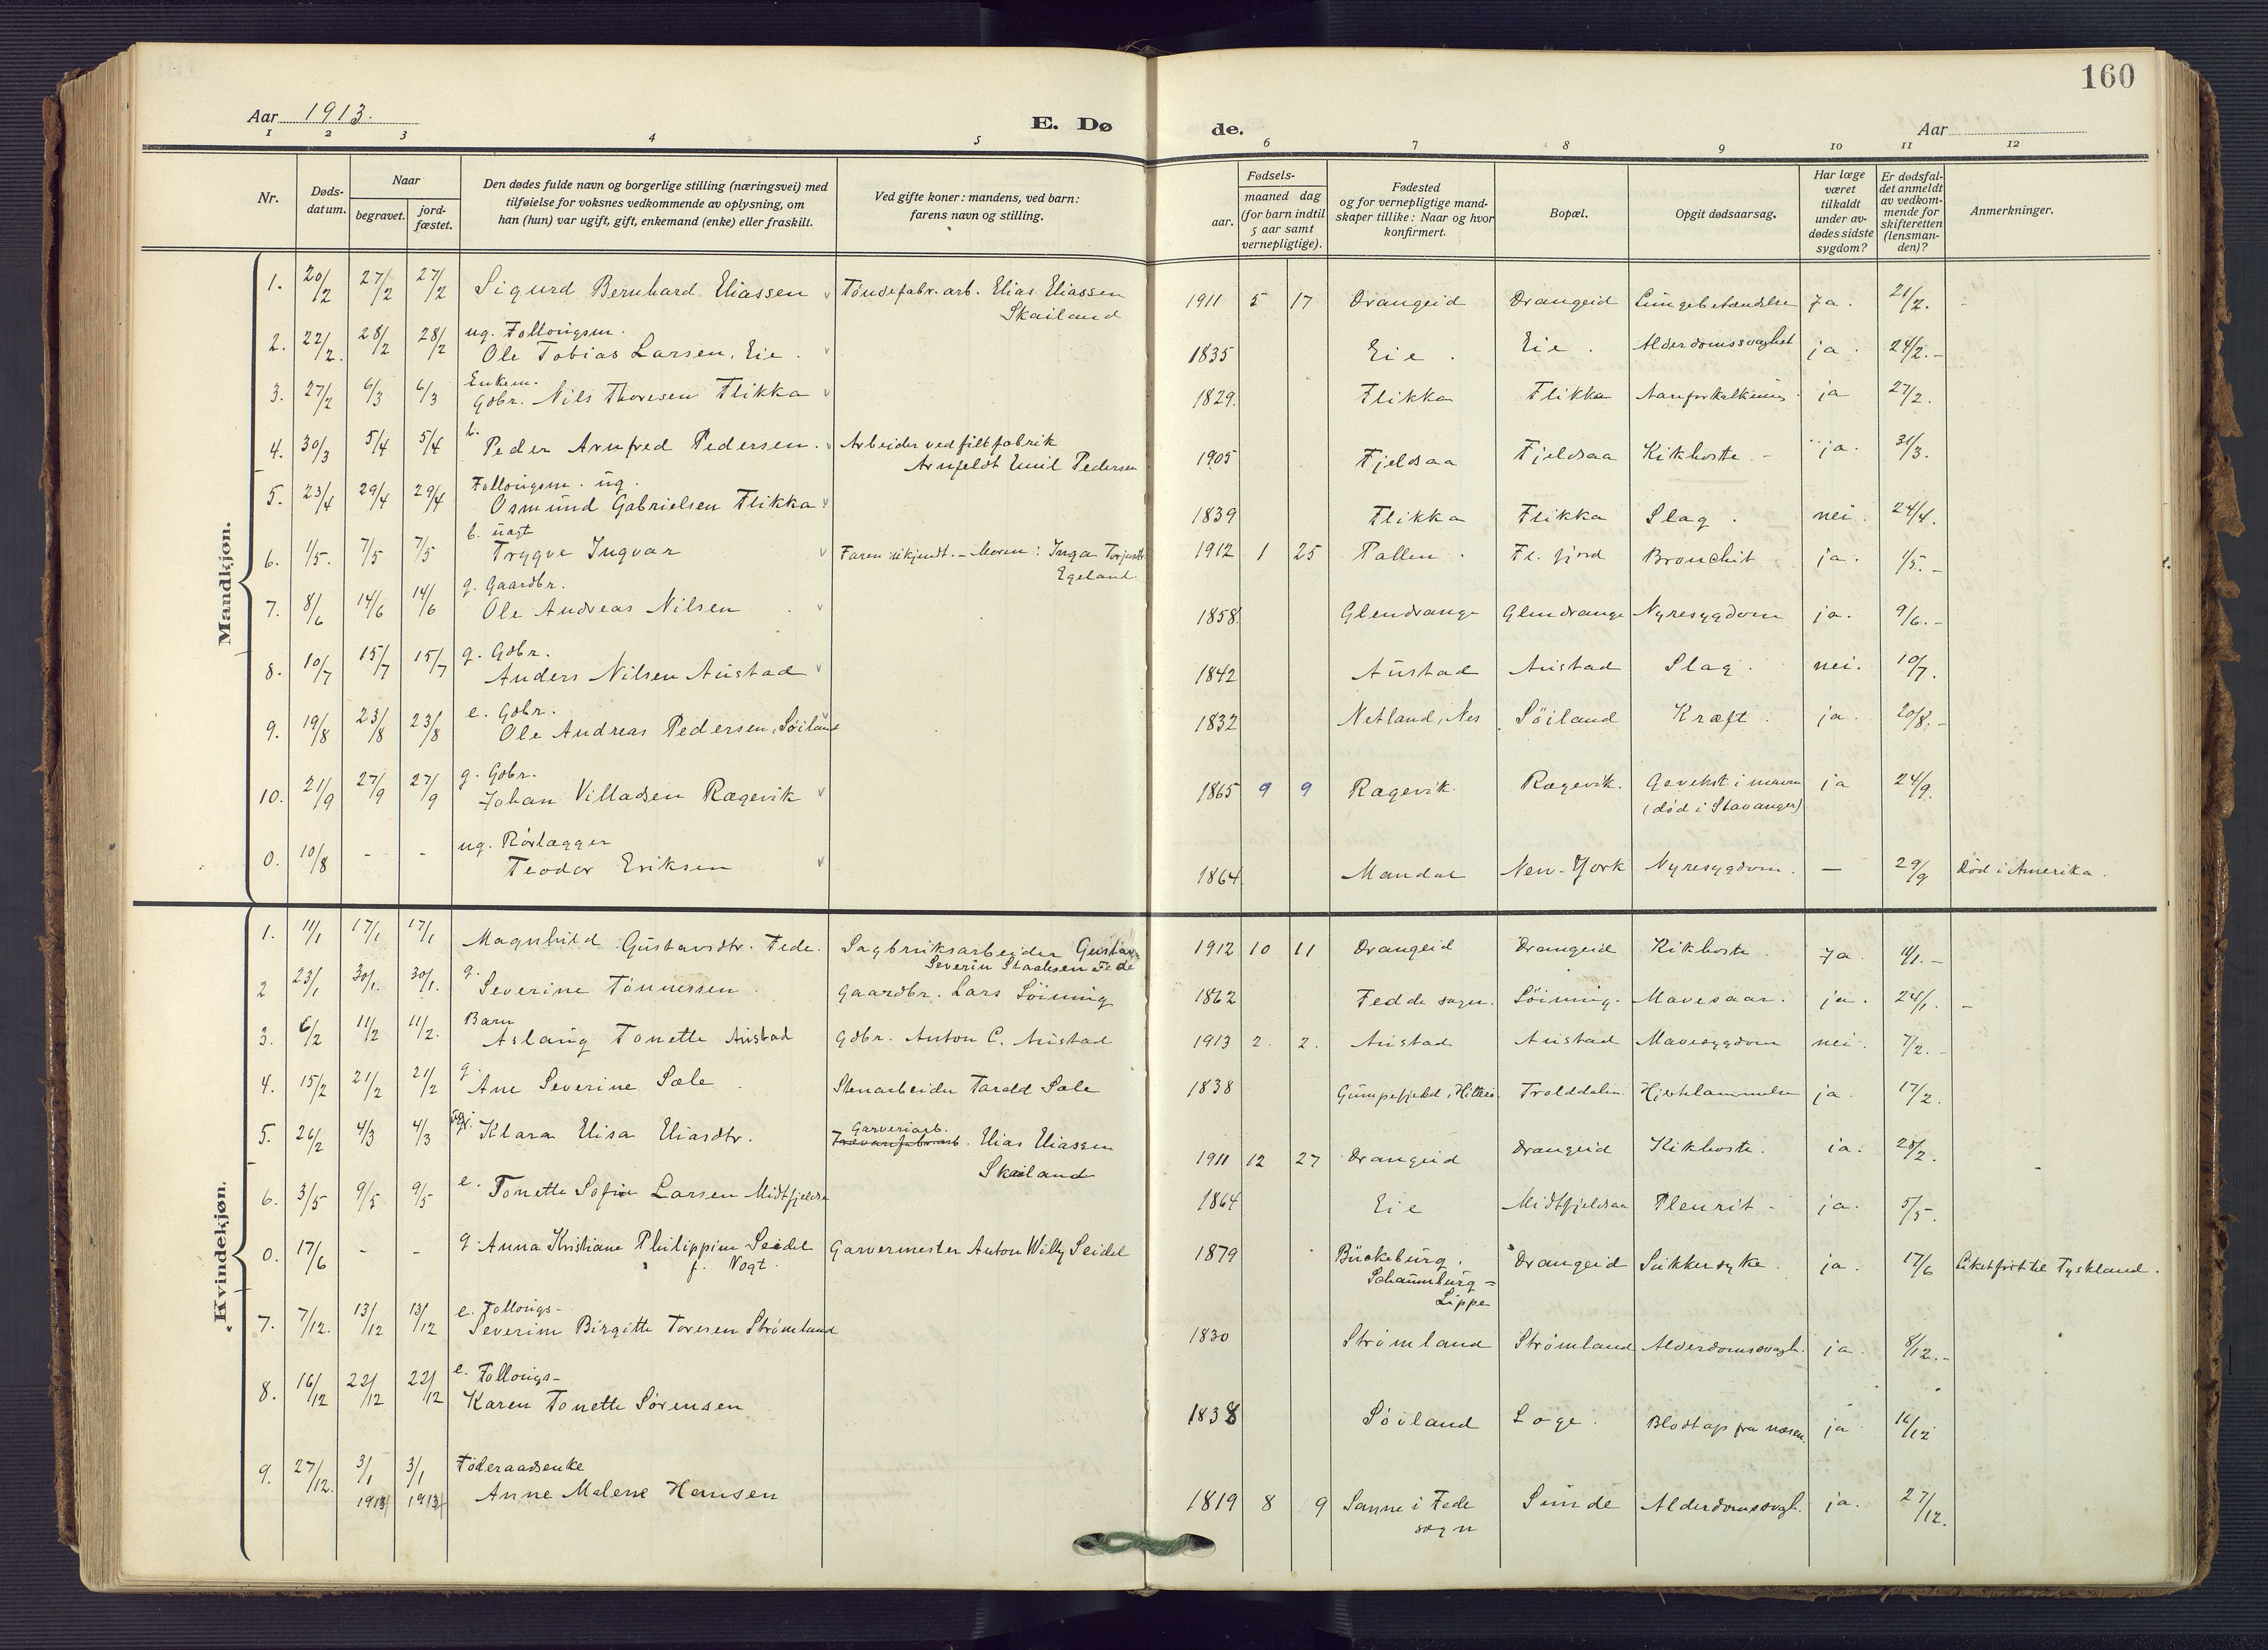 160
Aar 1913.
E. Dø
de.
Aar
1 2 3 4 5 6 7 8 9 10 11 12
Nr.
Døds-
datum.
Naar
begravet.
jord-
fæstet.
Den dødes fulde navn og borgerlige stilling (næringsvei) med
tilføielse for voksnes vedkommende av oplysning, om
han (hun) var ugift, gift, enkemand (enke) eller fraskilt.
Ved gifte koner: mandens, ved barn:
farens navn og stilling.
Fødsels-
aar.
maaned dag
(for barn indtil
5 aar samt
vernepligtige).
Fødested
og for vernepligtige mand-
skaper tillike: Naar og hvor
konfirmert.
Bopæl.
Opgit dødsaarsag.
Har læge
været
tilkaldt
under av-
dødes sidste
sygdom?
Er dødsfal-
det anmeldt
av vedkom-
mende for
skifteretten
(lensman-
den)?
Anmerkninger.
Mandkjøn.
1. 20/2 27/2 27/2 Sigurd Bernhard Eliassen v Töndefabr. arb. Elias Eliassen
Skailand
1911 5 17 Drangeid Drangeid Lungebetændelse Ja. 21/2.
ug. Follougsm.
2. 22/2. 28/2 28/2 Ole Tobias Larsen, Eie. v 1835 Eie. Eie. Alderdomssvaghet ja. 24/2.-
Enkem.
3. 27/2 6/3 6/3 Gdbr. Nils Thoresen Flikka v 1829. Flikka Flikka Aareforkalkning. ja 27/2.
b.
4. 30/3 5/4 5/4 Peder Arnfred Pedersen. v Arbeider ved filtfabrik
Arnfeldt Emil Pedersen
1905 Fjeldsaa Fjeldsaa Kikhoste - ja. 31/3.
Follougsm. ug.
5. 23/4 29/4 29/4 Osmund Gabrielsen Flikka v 1839 Flikka Flikka Slag. nei. 24/4.
b. uægt
6. 1/5. 7/5 7/5 Trygve Ingvar v Faren ukjendt. - Moren: Inga
Egeland.
1912 1 25 Pallen. Fl. fjord Bronchit ja. 1/5.-
g. Gaardbr.
7. 8/6 14/6 14/6 Ole Andreas Nilsen v 1858. Glendrange Glendrange Nyresygdom ja. 9/6.-
g. Gdbr.
8. 10/7 15/7 15/7 Anders Nilsen Austad v 1842 Austad Austad Slag. nei. 10/7.
e. Gdbr.
9. 19/8 23/8 23/8 Ole Andreas Pedersen, Söiland v 1832 Netland, Nes Söiland Kræft. ja. 20/8.-
g. Gdbr.
10. 21/9 27/9 27/9 Johan Villadsen Rægevik v 1865 9 9 Rægevik. Rægevik. Gevekst i maven ja 24/9.
(død i Stavanger)
ug. Rörlægger
0. 10/8 - - Teodor Eriksen v 1864 Mandal New-York Nyresygdom. - 29/9 Död i Amerika.
Kvindekjøn.
1. 11/1 17/1 17/1 Magnhild Gustavsdtr. Fede. Sagbruksarbeider Gustav
Severin Staalesen Fede
1912 10 11 Drangeid Drangeid Kikhoste. Ja. 11/1.-
g.
2 23/1 30/1. 30/1. Severine Tönnessen. Gaardbr. Lars Söining 1862 Fedde sogn. Söining. Mavesaar. ja. 24/1.
Barn
3. 6/2 11/2 11/2. Aslaug Tonette Austad Gdbr. Anton C. Austad 1913 2. 2. Austad Austad Mavesygdom nei. 7/2.-
g.
4. 15/2 21/2 21/2 Ane Severine Sæle Stenarbeider Tarald Sæle 1838 Gumpefjeld, Hitterö. Trolddalen Hjertelammelse ja. 17/2.
5. 26/2 4/3 4/3 Klara Elisa Eliasdtr. Garveriarb.
Trævarefabr. arb. Elias Eliassen
Skailand
1911 12 27 Drangeid Drangeid Kikhoste. ja. 28/2.
6. 3/5 9/5 9/5 e. Tonette Sofie Larsen Midtfjeldsa 1864 Eie Midtfjeldsaa Pleurit. ja. 5/5.
0. 17/6 - - g. Anna Kristiane Philippine Seidel
f. Vogt.
Garvermester Anton Willy Seidel 1879 Bückeburg,
Schaumburg -
Lippe
Drangeid Sukkersyke. ja. 17/6 Liket fört til Tyskland.
e. Follougs-
7. 7/12. 13/12 13/12 Severine Birgitte Toresen Strømland 1830 Strømland Strømland Alderdomssvagh. ja. 8/12.-
e. Follougs-
8. 16/12 22/12 22/12 Karen Tonette Sørensen 1838 Söiland Loge. Blodtap fra næsen. ja 16/12
Føderaadsenke
9. 27/12. 3/1 3/1 Anne Malene Hansen
1819 8 9 Sanne i Fede
sogn
Sunde Alderdomssvagh. ja. 27/12.